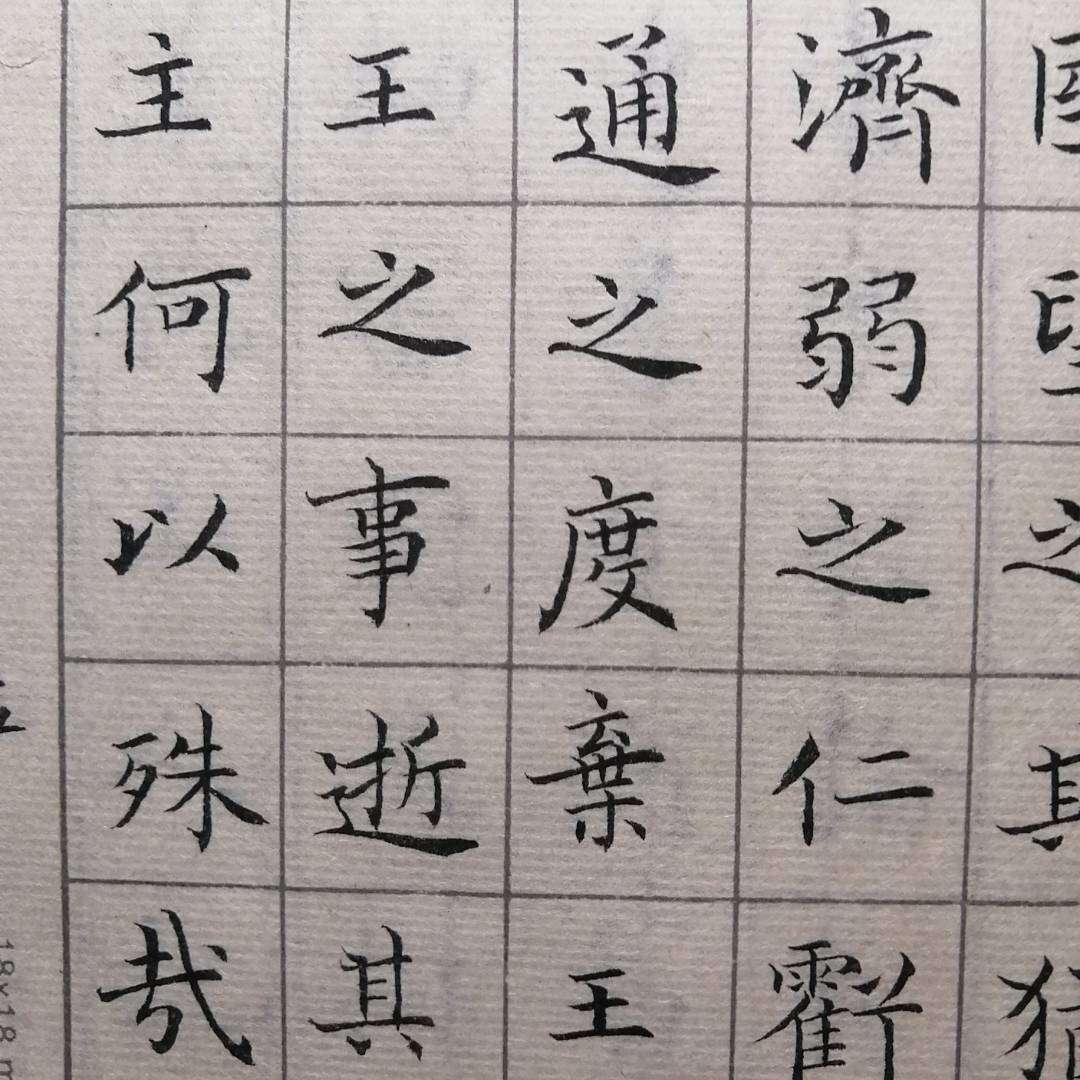 之其
濟弱之仁虧
通之度棄王
王之事逝其
主何以殊哉
18×18 m